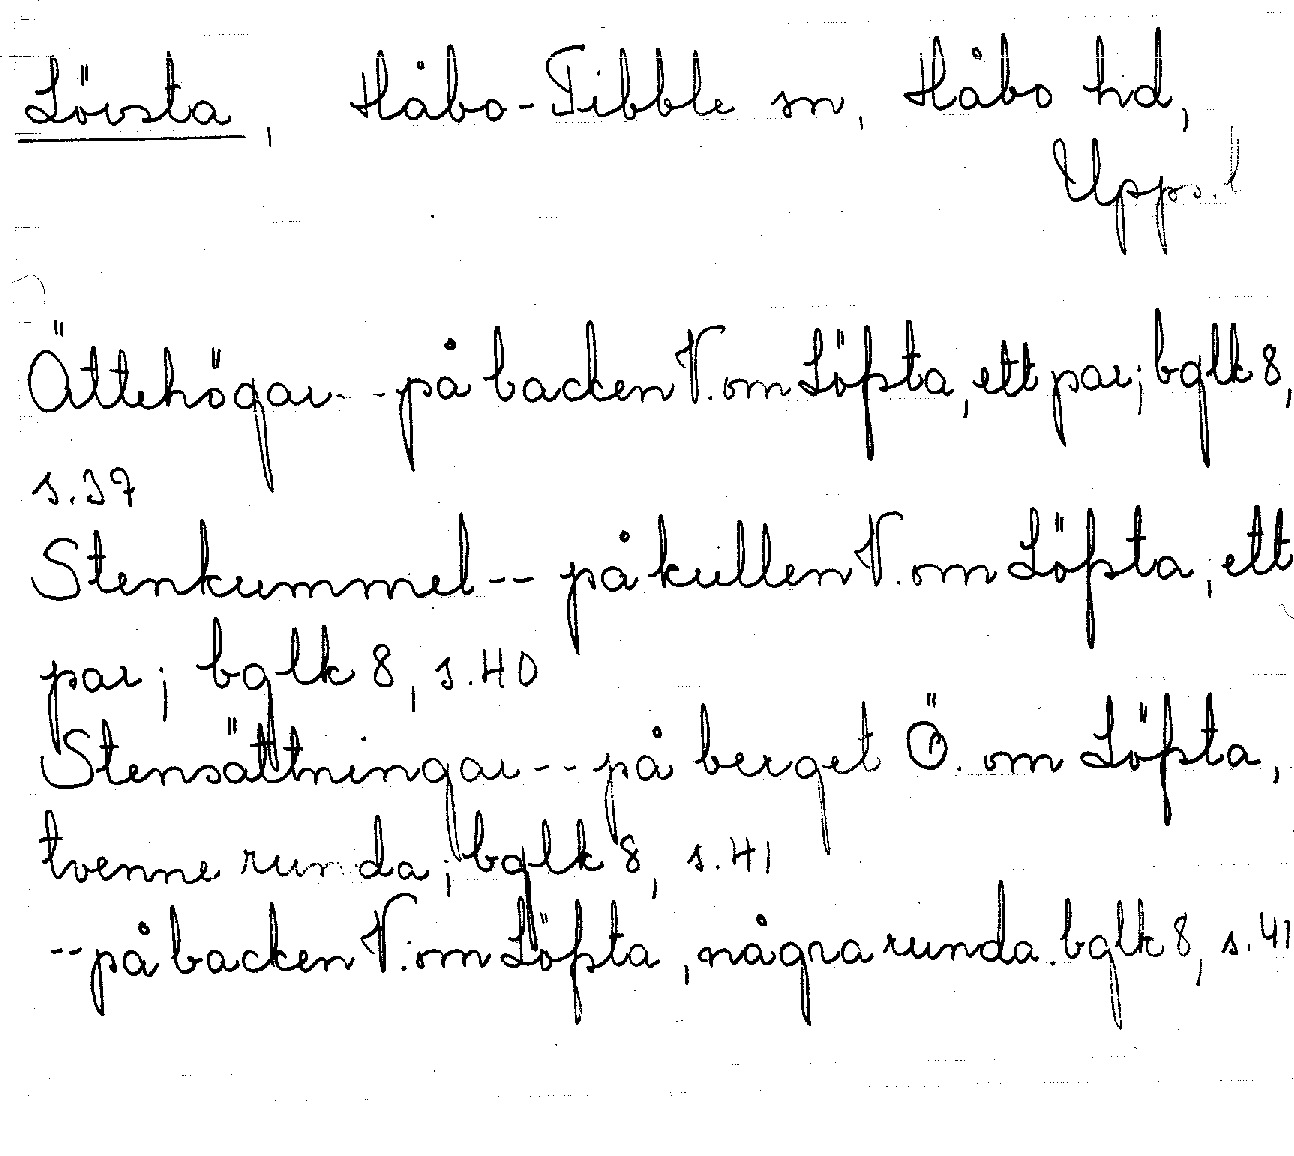 Lövsta, Håbo-Tibble sn, Håbo hd,
Upps. l
Ättehögar -- på backen V. om Löfsta, ett par; bglk 8,
s. 37
Stenkummel -- på kullen V. om Löfsta, ett
par; bglk 8, s. 40
Stensättningar -- på berget Ö. om Löfsta,
tvenne runda; bglk 8, s. 41
-- på backen V. om Löfsta, några runda. bglk 8, s. 41